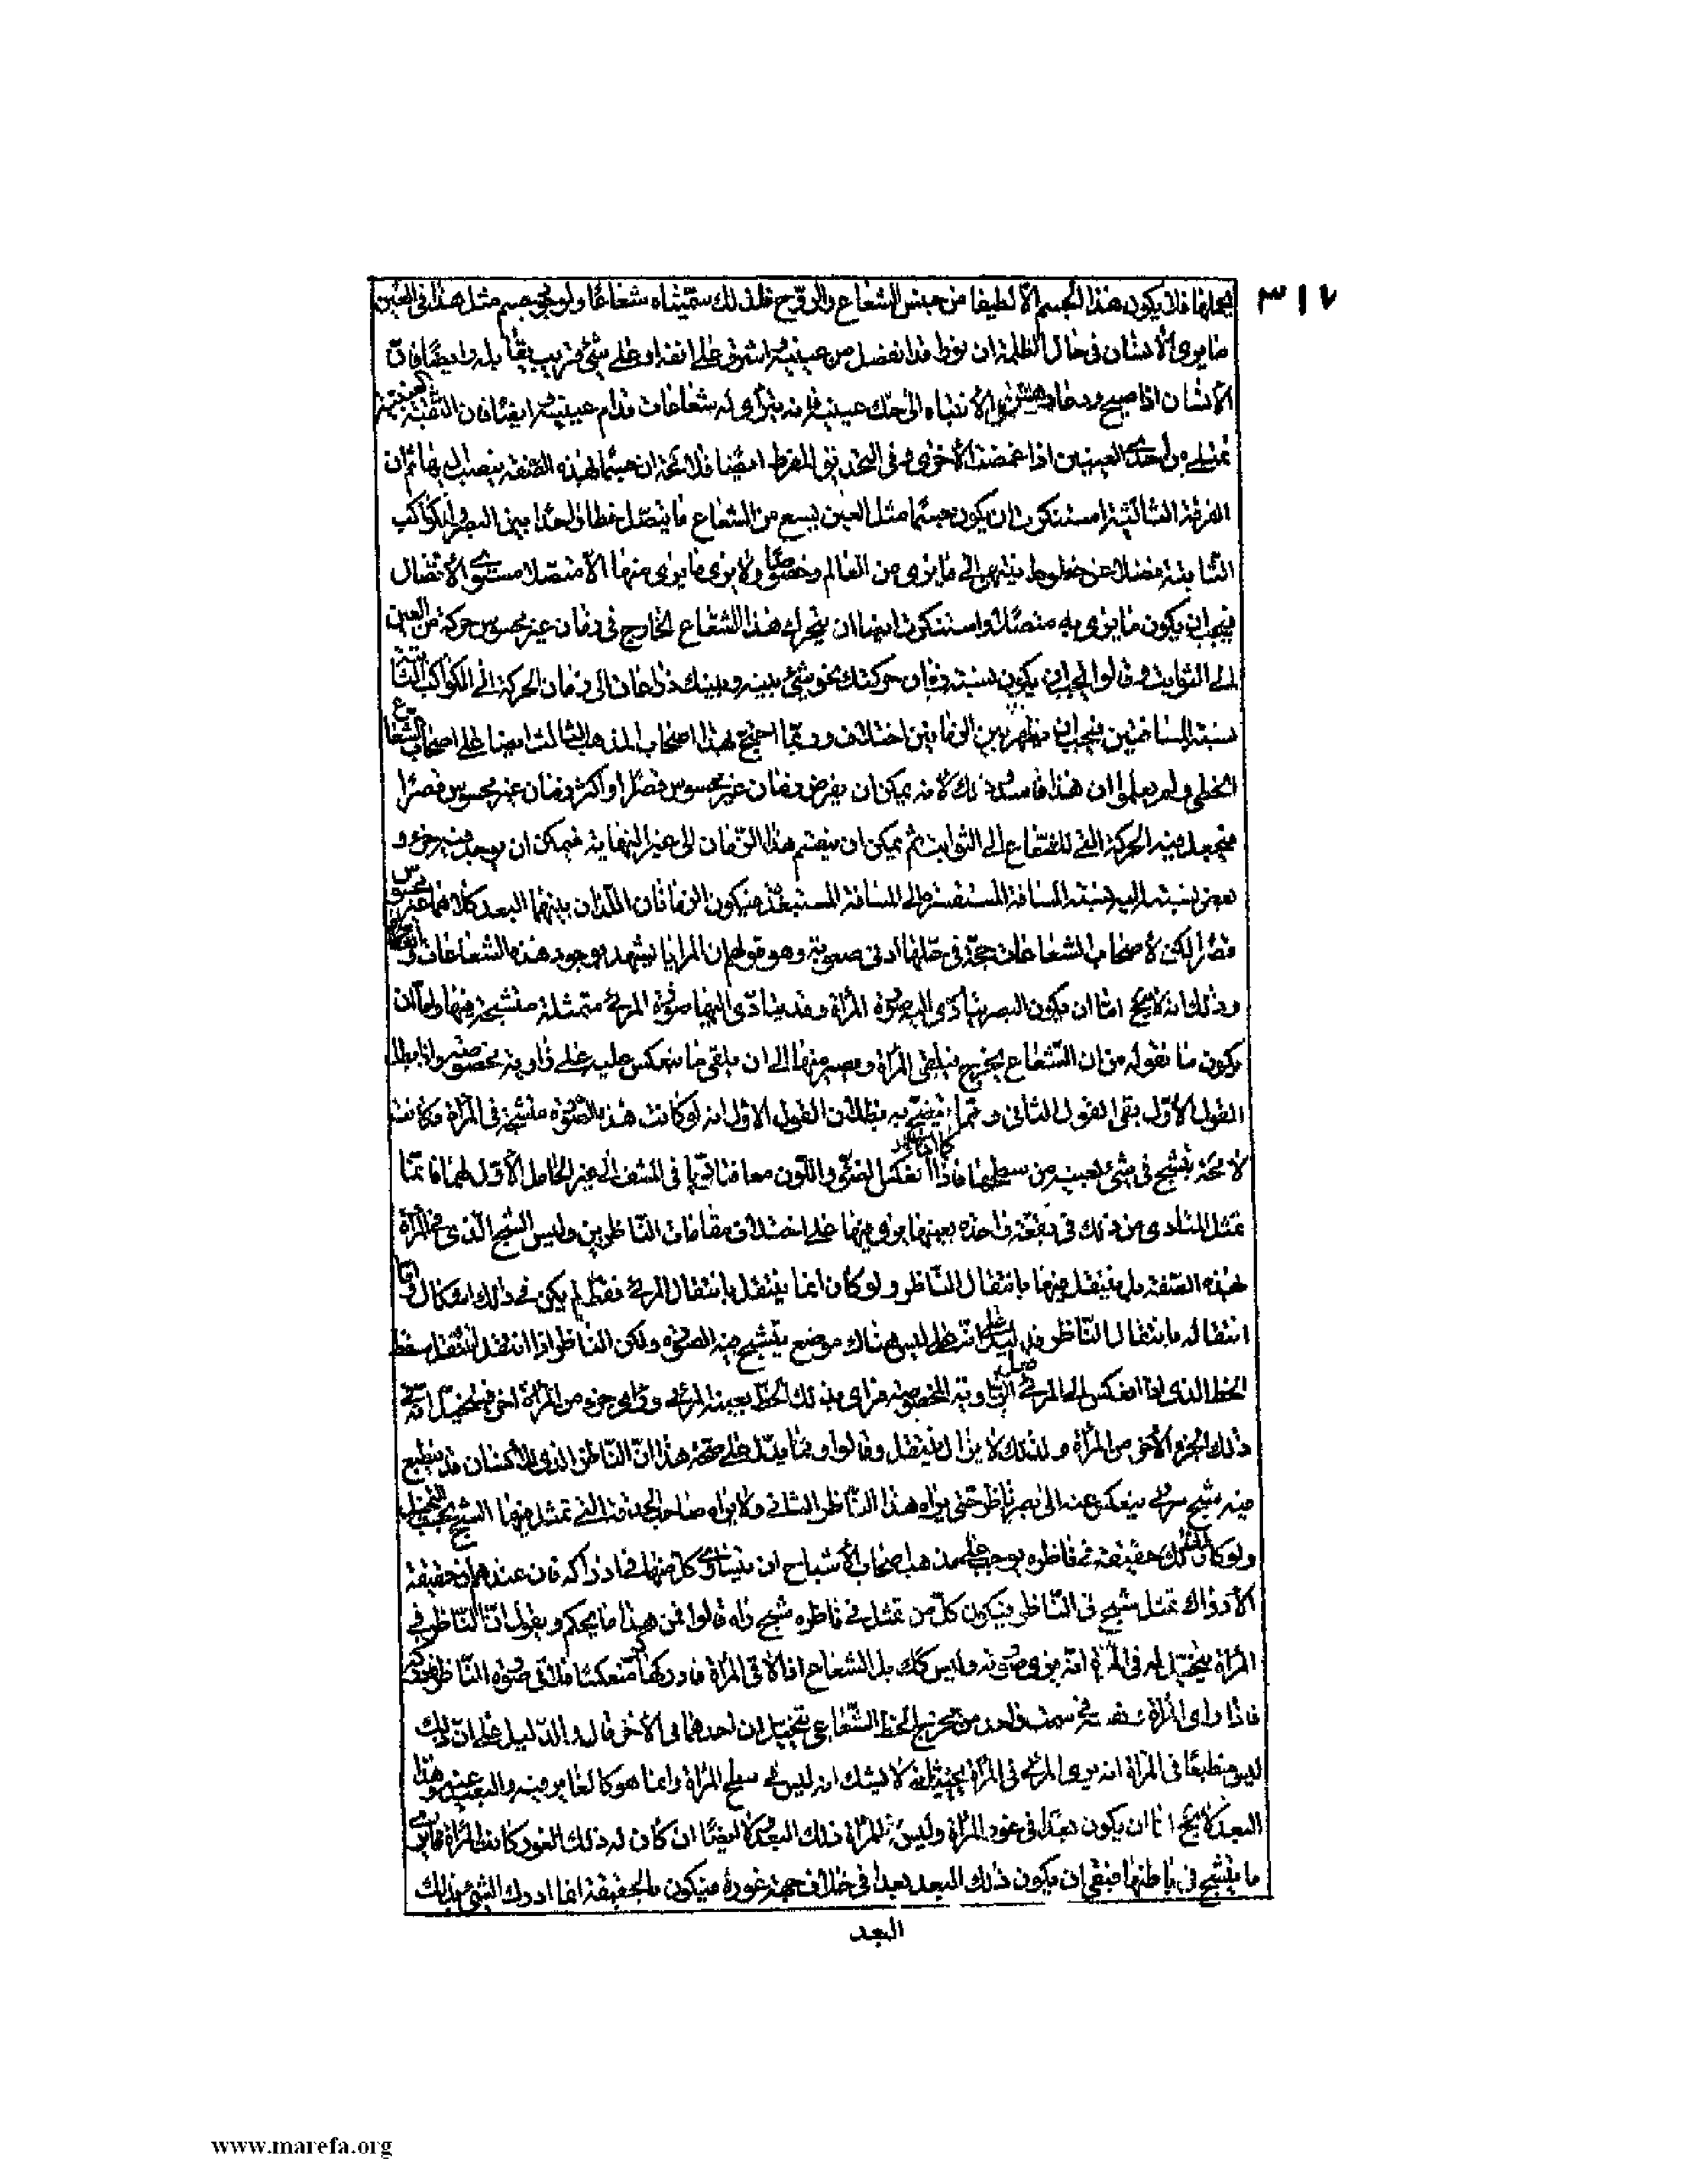 ٣١٧
يملؤها فلن يكون هذا الجسم الا لطيفا من جنس الشعاع والروح فلذلك سميناه شعاعا ولو لم يكن جسم مثل هذا في العين
ما يرى الانسان في حال الظلمة ان نورا قد انفصل من عينيه واشرق على انفه او على شئ قريب يقابله وايضا فان
الانسان اذا اصبح ودعاه الانتباه الى حك عينيه فانه يتراى له شعاعات قدام عينيه وايضا فان الثقبة العنبية
تمتلى من احدى العينين اذا غمضت الاخرى وفي التحديق المفرط ايضا فلا محة ان جسما بهذه الصفة ينصب اليها ثم ان
الفرقة الثانية استنكرت ان يكون جسما مثل العين يسع من الشعاع ما يتصل خطا واحدا بين البصر والكواكب
الثابتة فضلا عن خطوط ينتهى الى ما يرى من العالم وخصوصا ولا يرى ما يرى منها الا متصلا مستوى الاتصال
فيجب ان يكون ما يرى به متصلا واستنكرت ايضا ان يتحرك هذا الشعاع الخارج في زمان غير محسوس حركة من العين
الى الثوابت وقالوا يجب ان يكون نسبة زمان حركتك نحو شئ بينه وبينك ذراعان الى زمان الحركة الى الكواكب الثابتة
نسبة المسافتين فيجب ان يظهر بين الزمانين اختلاف وربما احتج بهذا اصحاب المذهب الثالث ايضا على اصحاب الشعاع
الخطى ولم يعلموا ان هذا فاسد وذلك لانه يمكن ان يفرض زمان غير محسوس قصرا او اكثر زمان غير محسوس قصرا
فيجعل فيه الحركة التي للشعاع الى الثوابت ثم يمكن ان ينقسم هذا الزمان الى غير النهاية فيمكن ان يوجد فيه جزء و
بعض نسبته اليه نسبة المسافة المستقصرة الى المسافة المستبعدة فيكون الزمانان اللذان بينهما البعد كلاهما غير محسوس
قصرا لكن لاصحاب الشعاعات حجة في حلها ادنى صعوبة وهو قولهم ان المرايا يشهد بوجود هذه الشعاعات وانعكاسها
وذلك انه لا يخ اما ان يكون البصر يتادى اليه صورة المراة وقد يتادى اليها صورة المرئى متمثلة متشبحة فيها واما ان
يكون ما نقوله من ان الشعاع يخرج فيلقى المراة ويصير منها الى ان يلقى ما ينعكس عليه على زاوية مخصوصة واذا بطل
القول الاول بقى القول الثاني ومما يتضح به بطلان القول الاول انه لو كانت هذه الصورة متشبحة في المراة وكانت
لا محة يتشبح في شئ بعينه من سطحها كما اذا انعكس الضوء واللون معا فتاديا في المشف الى غير الحامل الاول لهما فانما
تمثل المتادى من ذلك في بقعة واحدة بعينها يرى فيها على اختلاف مقامات الناظرين وليس الشبح الذي في المراة
بهذه الصفة بل ينتقل فيها بانتقال الناظر ولو كان انما ينتقل بانتقال المرئى فقط لم يكن في ذلك اشكال واما
انتقاله بانتقال الناظر فدليل على انه ليس هناك موضع يتشبح فيه الصورة ولكن الناظر اذا انتقل انتقل مسقط
الخط الذي اذا انعكس الى المرئى فعل الزاوية المخصوصة فراى بذلك الخط بعينه المرئى وراى جزء من المراة اخر فيخيل انه في
ذلك الجزء الاخر من المراة وكذلك لا يزال ينتقل وقالوا ومما يدل على صحة هذا ان الناظر الذي للانسان قد ينطبع
فيه شبح مرئى ينعكس عنه الى بصر ناظر حتى يراه هذا الناظر الثاني ولا يراه صاحب الحدقة التي تمثل فيها الشبح بحسب التخيل
ولو كان لذلك حقيقة في ناظره لوجب على مذهب اصحاب الاشباح ان يتساوى كل منهما في ادراكه فان عندهم ان حقيقة
الادراك تمثل شبح في الناظر فيكون كل من تمثل في ناظره شبح راه قالوا فمن هذا ما يحكم ويقول ان الناظر في
المراة يتخيل له في المراة انه يرى صورته وليس كك بل الشعاع اذا لاقى المراة فادركها كر منعكسا فلاقى صورة الناظر فادركه
فاذا راى المراة ونفسه في سمت واحد من مخرج الخط الشعاعي يتخيل ان احدهما في الاخر قال والدليل على ان ذلك
ليس منطبعا في المراة انه يرى المرئى في المراة بحيث لا يشك انه ليس في سطح المراة وانما هو كالغاير فيه والبعيد عنه وهذا
البعد لا يخ اما ان يكون بعدا في غور المراة وليس للمراة ذلك البعد ولا ايضا ان كان له ذلك الغور كانت المراة مما يرى
ما يتشبح في باطنها فبقى ان يكون ذلك البعد بعدا في خلاف جهة غوره فيكون بالحقيقة انما ادرك الشئ بذلك
البعد
www.marefa.org